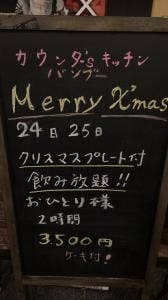 カウンダ'sキッチン
バンブー
Merry X'mas
24日25日
クリスマスプレート付
飲み放題!!
おひとり様
2時間
3.500円
ケーキ付!